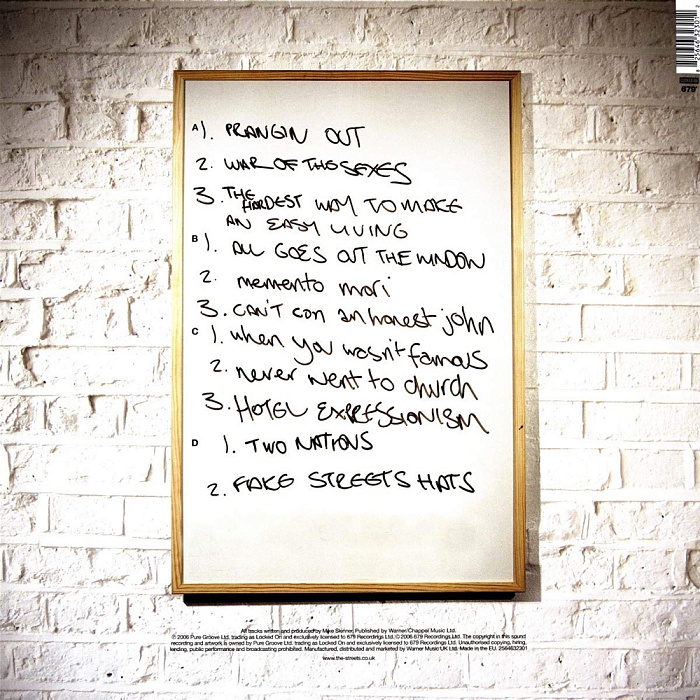 A 1. PRANGIN OUT
2. WAR OF THE SEXES
3. THE HARDEST WAY TO MAKE
AN EASY LIVING
B 1. ALL GOES OUT THE WINDOW
2. memento mori
3. CAN'T con an honest john
C 1. when you wasn't famous
2. never went to church
3. HOTEL EXPRESSIONISM
D 1. TWO NATIONS
2. FAKE STREETS HATS
679
All tracks written and produced by Mike Skinner. Published by Warner/Chappel Music Ltd.
℗ 2006 Pure Groove Ltd. trading as Locked On and exclusively licensed to 679 Recordings Ltd. © 2006 679 Recordings Ltd. The copyright in this sound
recording and artwork is owned by Pure Groove Ltd. trading as Locked On and exclusively licensed to 679 Recordings Ltd. Unauthorised copying, hiring,
lending, public performance and broadcasting prohibited. Manufactured, distributed and marketed by Warner Music UK Ltd. Made in the EU. 2564632301
www.the-streets.co.uk